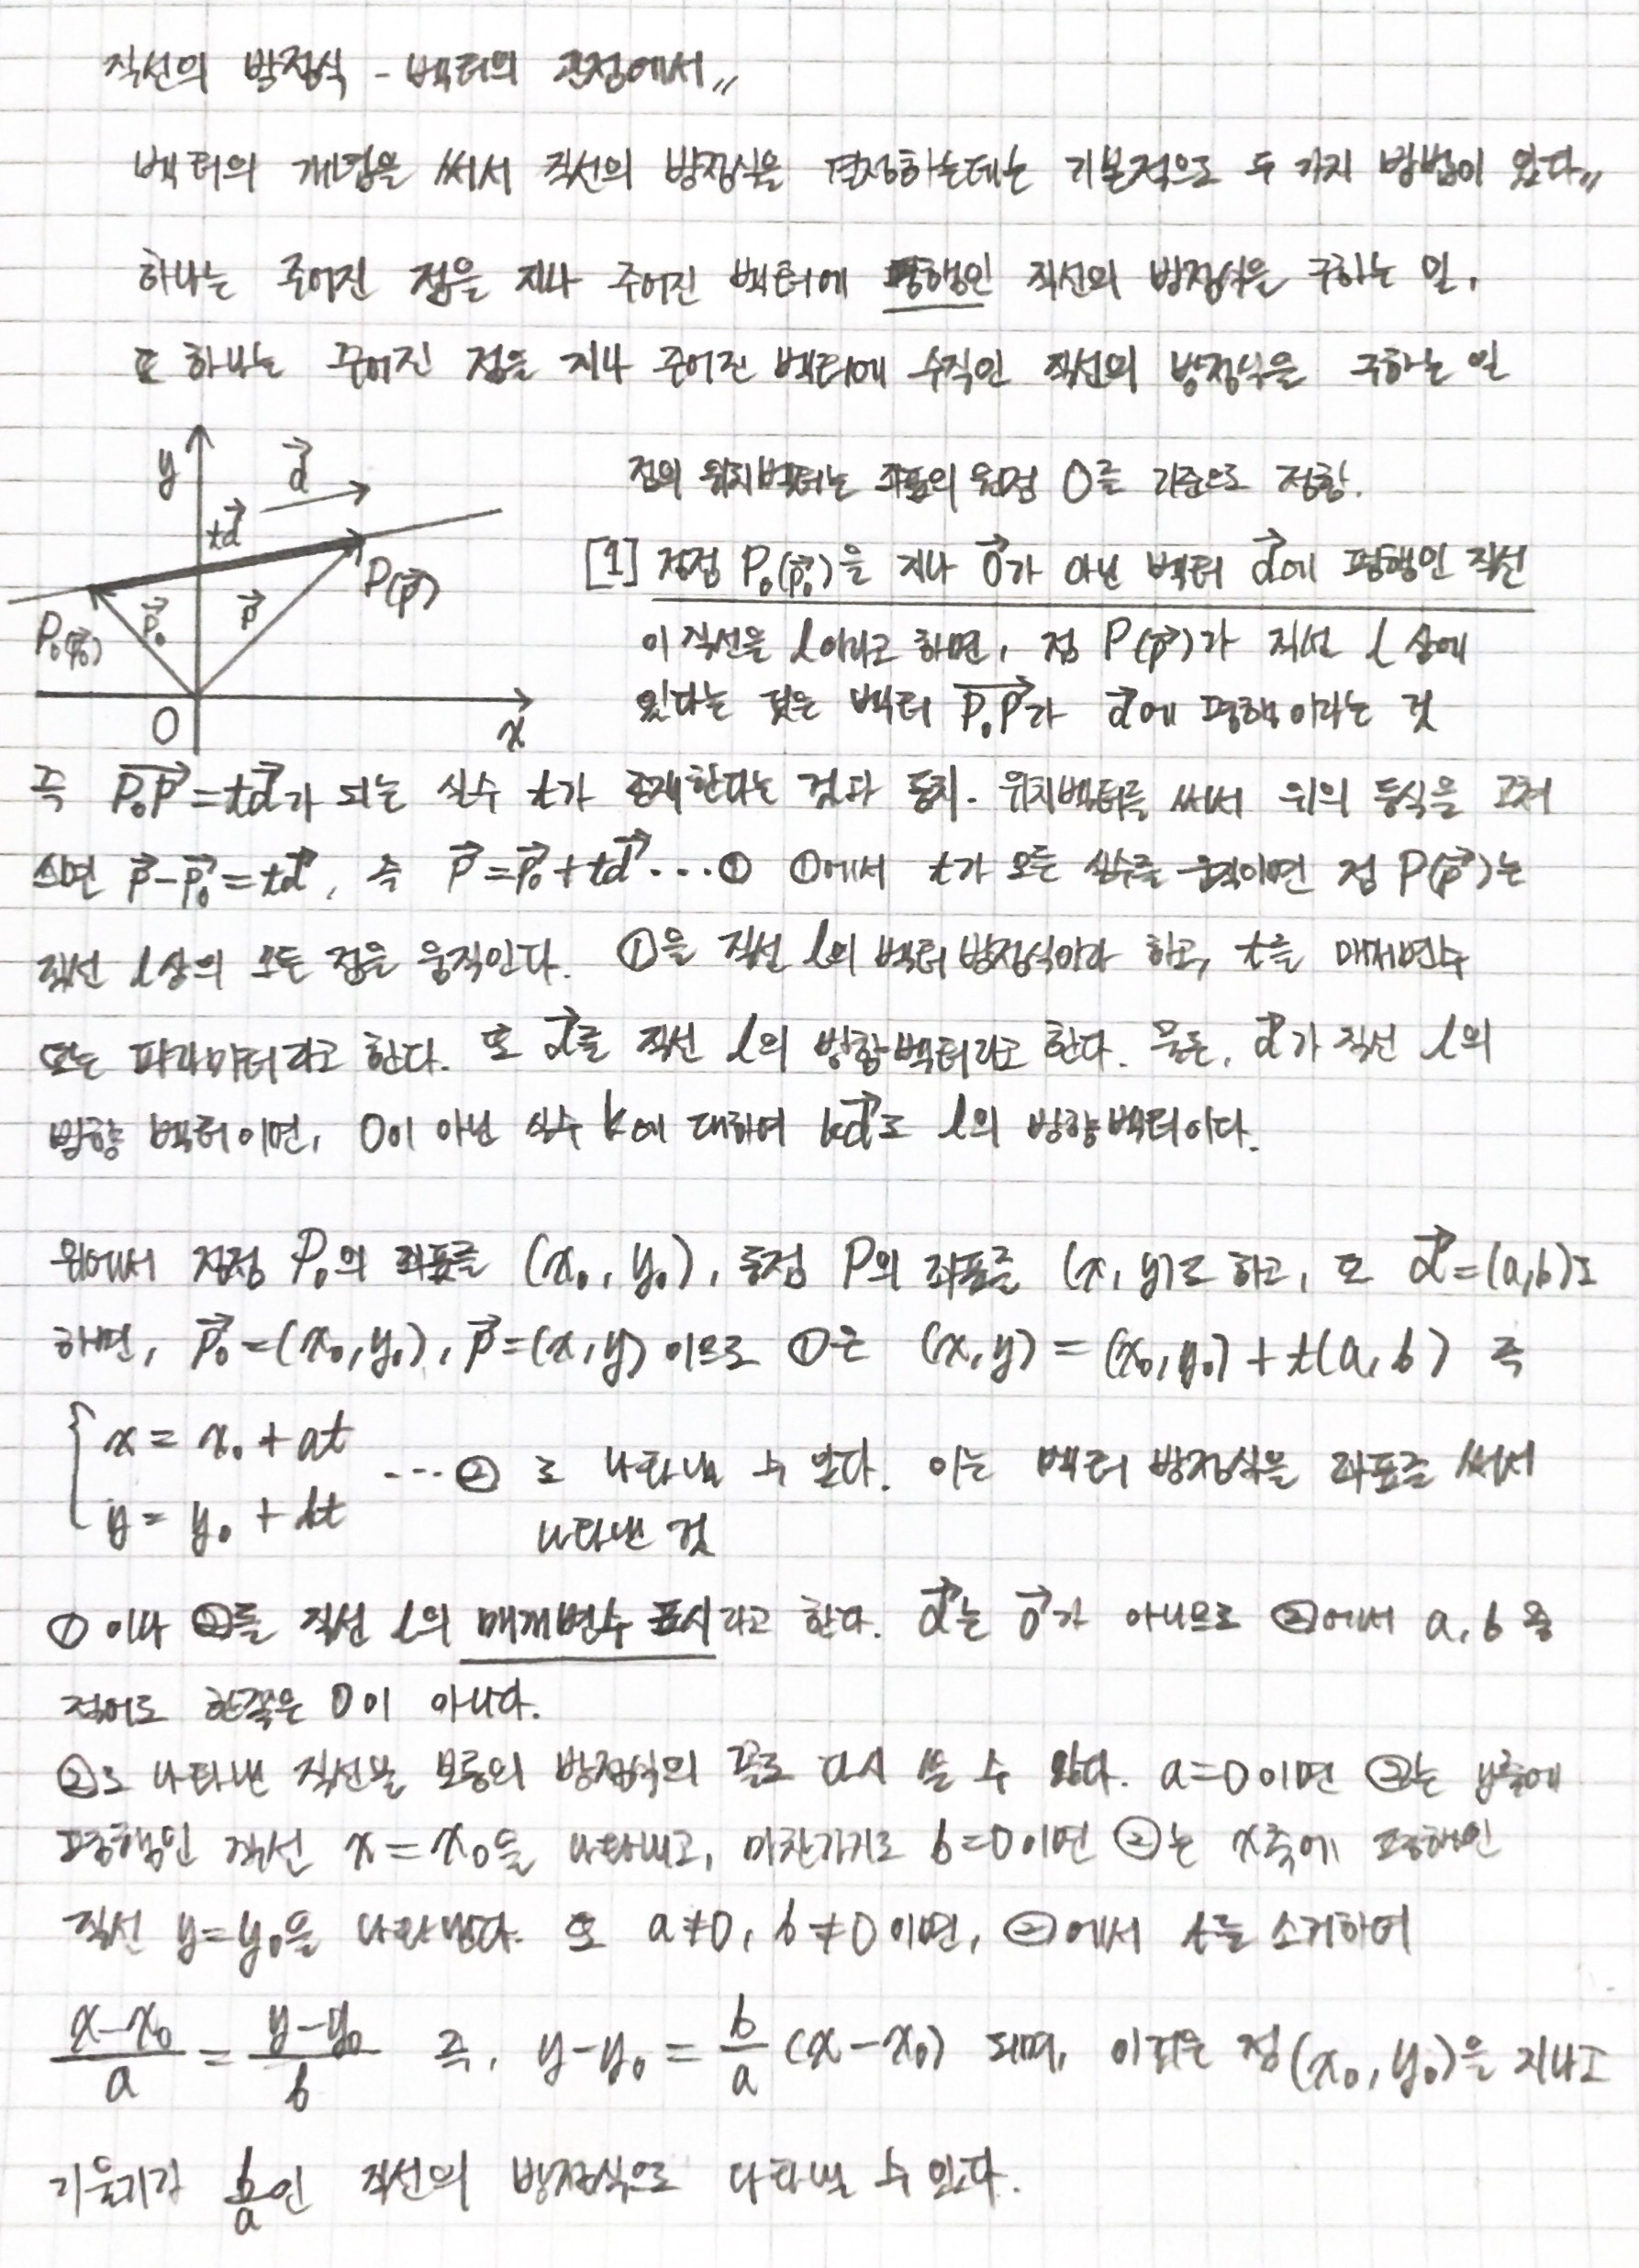 직선의 방정식 - 벡터의 관점에서〃
벡터의 개념을 써서 직선의 방정식을 결정하는데는 기본적으로 두 가지 방법이 있다〃
하나는 주어진 점을 지나 주어진 벡터에 평행인 직선의 방정식을 구하는 일,
또 하나는 주어진 점을 지나 주어진 벡터에 수직인 직선의 방정식을 구하는 일
y
d⃗
td⃗
P(p⃗)
P₀(p₀⃗)
p₀⃗
p⃗
O
x
점의 위치벡터는 좌표의 원점 O를 기준으로 정함.
[1] 정점 P₀(p₀⃗)을 지나 0⃗가 아닌 벡터 d⃗에 평행인 직선
이 직선을 l이라고 하면, 점 P(p⃗)가 직선 l 상에
있다는 것은 벡터 P₀P⃗가 d⃗에 평행이라는 것
즉 P₀P⃗=td⃗가 되는 실수 t가 존재한다는 것과 동치. 위치벡터를 써서 위의 등식을 고쳐
쓰면 p⃗-p₀⃗=td⃗, 즉 p⃗=p₀⃗+td⃗ ⋯① ①에서 t가 모든 실수를 움직이면 점 P(p⃗)는
직선 l상의 모든 점을 움직인다. ①을 직선 l의 벡터 방정식이라 하고, t를 매개변수
또는 파라미터라고 한다. 또 d⃗를 직선 l의 방향벡터라고 한다. 물론, d⃗가 직선 l의
방향 벡터이면, 0이 아닌 실수 k에 대하여 kd⃗도 l의 방향벡터이다.
위에서 정점 P₀의 좌표를 (x₀, y₀), 동점 P의 좌표를 (x, y)로 하고, 또 d⃗=(a,b)로
하면, p₀⃗=(x₀,y₀), p⃗=(x,y) 이므로 ①은 (x,y) = (x₀,y₀) + t(a,b) 즉
{ x = x₀ + at
y = y₀ + bt
⋯② 로 나타낼 수 있다. 이는 벡터 방정식을 좌표를 써서
나타낸 것
① 이나 ②를 직선 l의 매개변수 표시라고 한다. d⃗는 0⃗가 아니므로 ②에서 a, b 중
적어도 한쪽은 0이 아니다.
②로 나타낸 직선을 보통의 방정식의 꼴로 다시 쓸 수 있다. a=0이면 ②는 y축에
평행인 직선 x=x₀을 나타내고, 마찬가지로 b=0이면 ②는 x축에 평행인
직선 y=y₀을 나타낸다. 또 a≠0, b≠0이면, ②에서 t를 소거하여
(x-x₀)/a = (y-y₀)/b 즉, y-y₀ = b/a (x-x₀) 되며, 이것은 점(x₀, y₀)을 지나고
기울기가 b/a인 직선의 방정식으로 나타낼 수 있다.